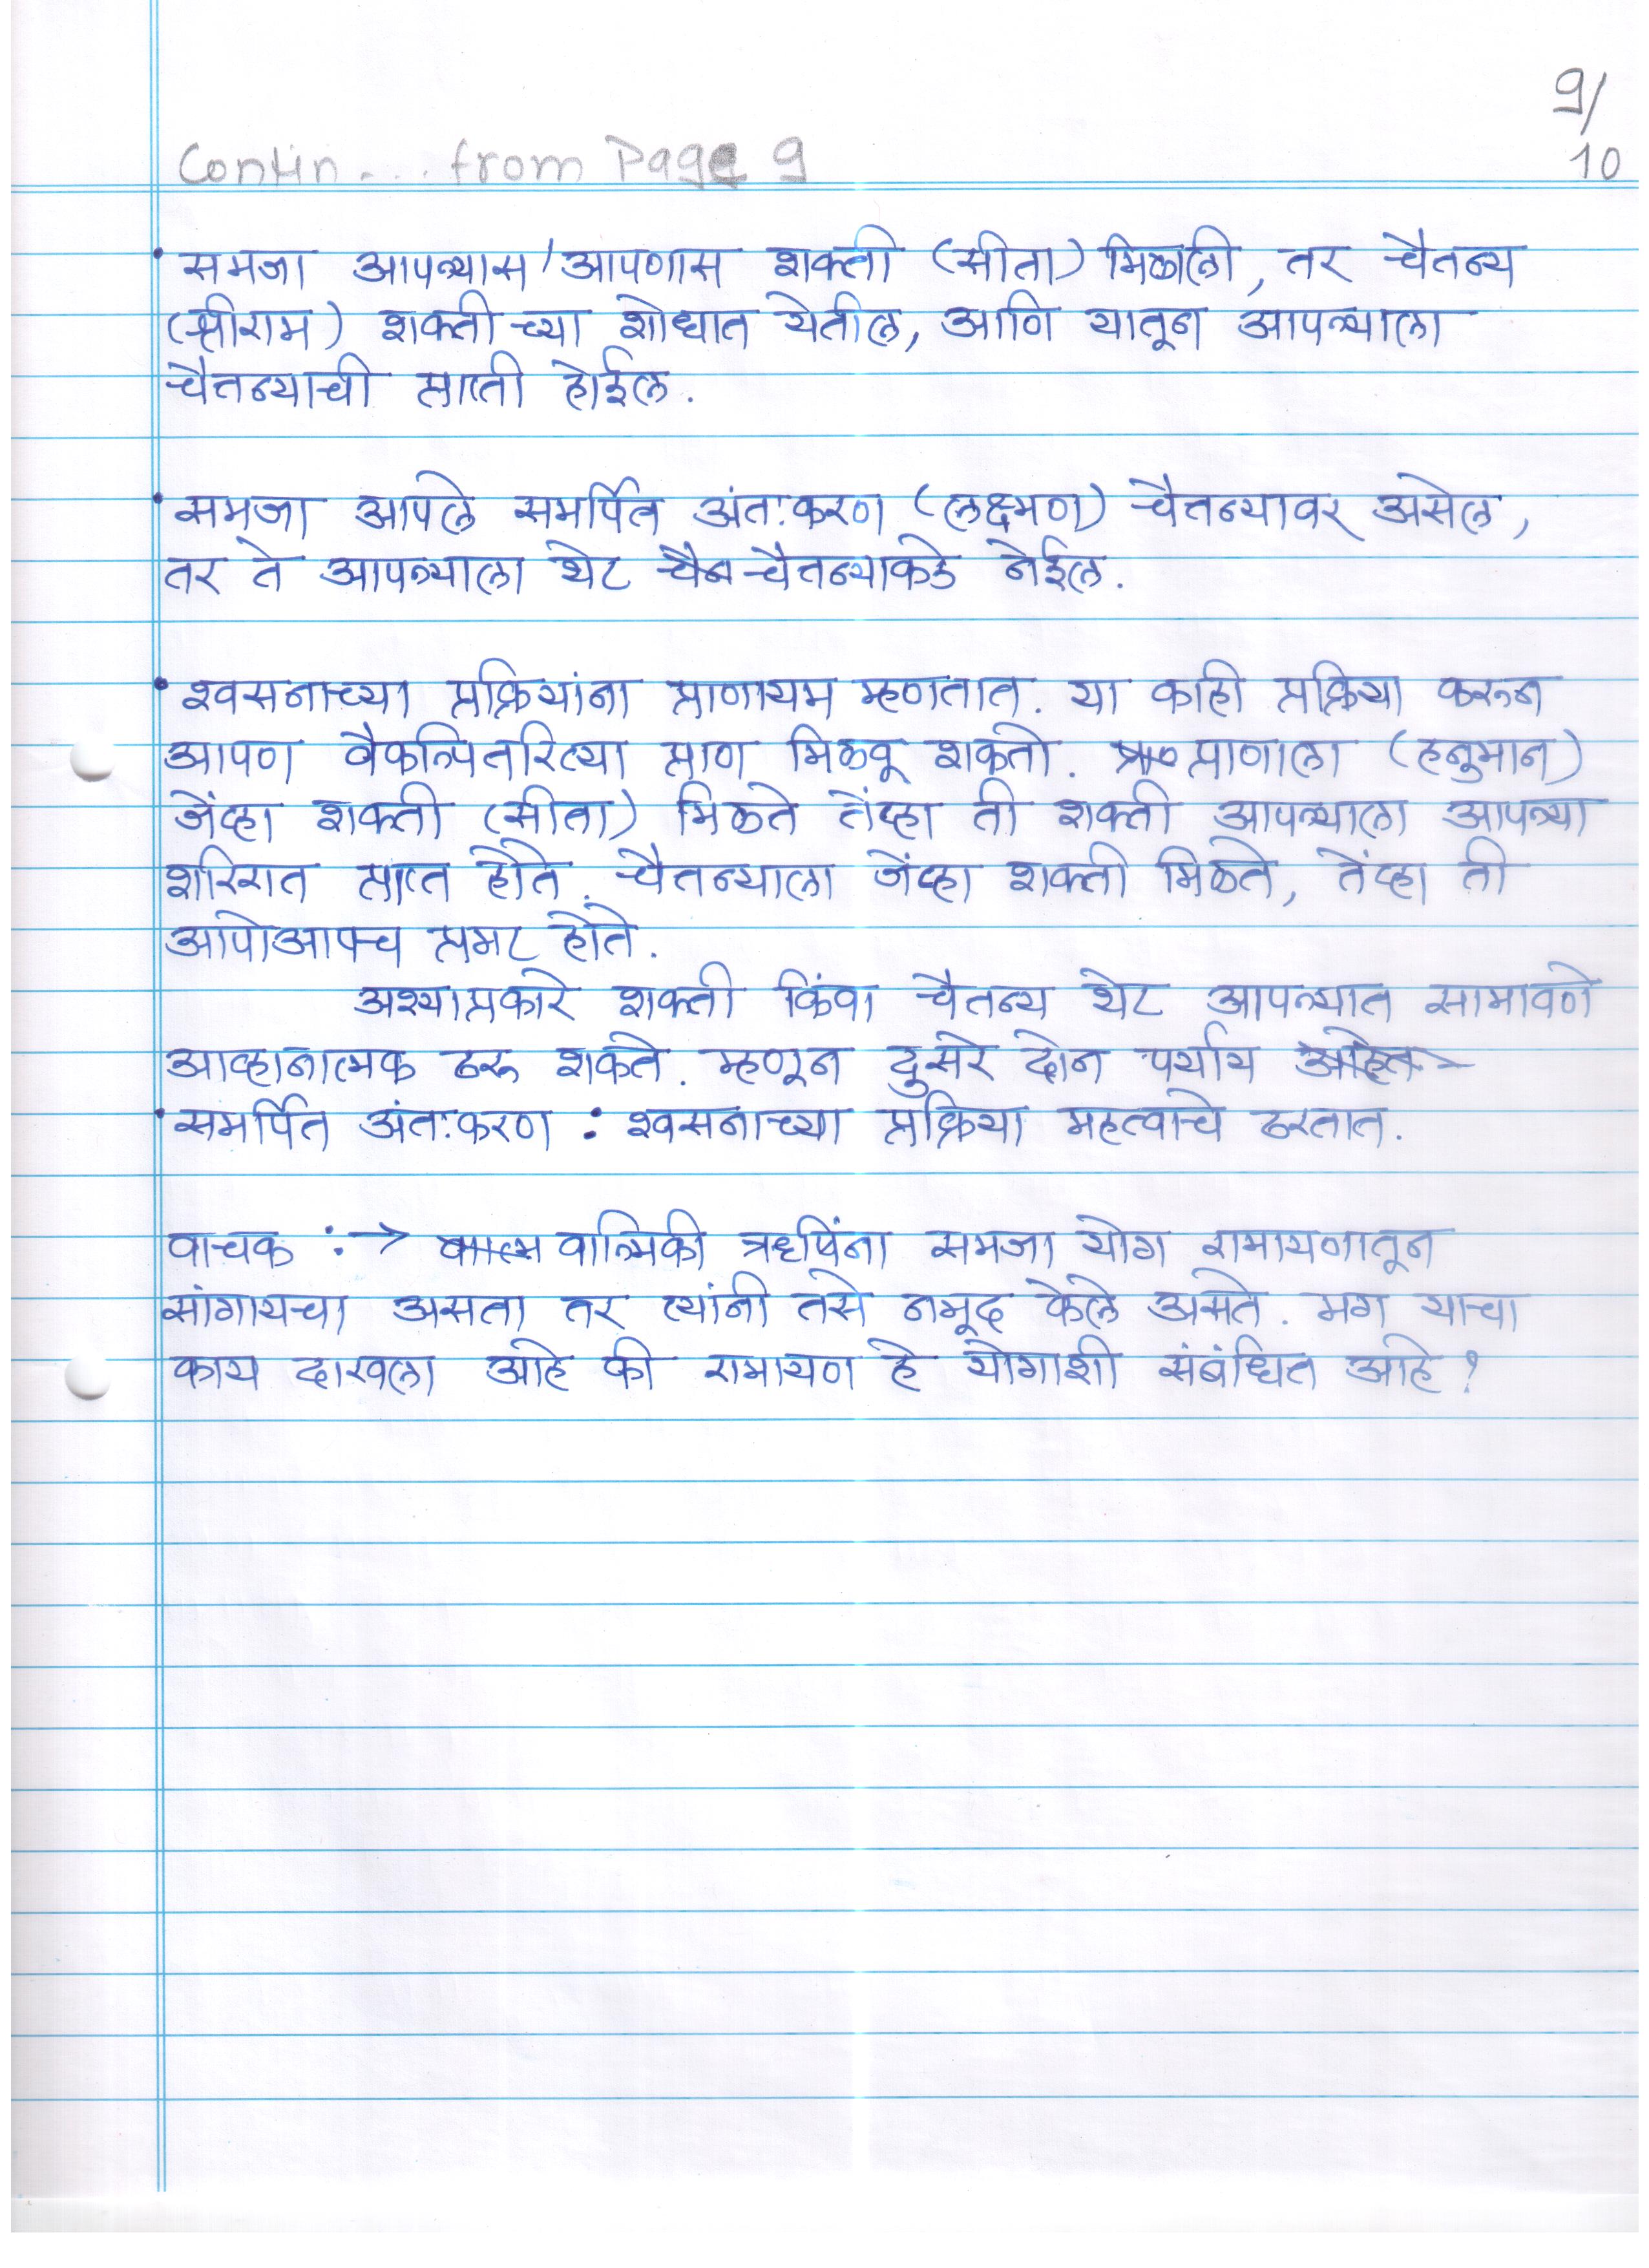 9/
10
Contin... from Page 9
• समजा आपल्यास/आपणास शक्ती (सीता) मिळाली, तर चैतन्य
(श्रीराम) शक्तीच्या शोधात येतील, आणि यातून आपल्याला
चैतन्याची प्राप्ती होईल.
• समजा आपले समर्पित अंतःकरण (लक्ष्मण) चैतन्यावर असेल,
तर ते आपल्याला थेट चैतन्याकडे नेईल.
• श्वसनाच्या प्रक्रियांना प्राणायम म्हणतात. या काही प्रक्रिया करून
आपण वैकल्पितरित्या प्राण मिळवू शकतो. प्राणाला (हनुमान)
जेंव्हा शक्ती (सीता) मिळते तेंव्हा ती शक्ती आपल्याला आपल्या
शरिरात प्राप्त होते. चैतन्याला जेंव्हा शक्ती मिळते, तेंव्हा ती
आपोआपच प्रगट होते.
अश्याप्रकारे शक्ती किंवा चैतन्य थेट आपल्यात सामावणे
आव्हानात्मक ठरू शकते. म्हणून दुसरे दोन पर्याय आहेत
• समर्पित अंतःकरण : श्वसनाच्या प्रक्रिया महत्वाचे ठरतात.
वाचक :→ वाल्मिकी ऋषिंना समजा योग रामायणातून
सांगायचा असता तर त्यांनी तसे नमूद केले असते. मग याचा
काय दाखला आहे की रामायण हे योगाशी संबंधित आहे?